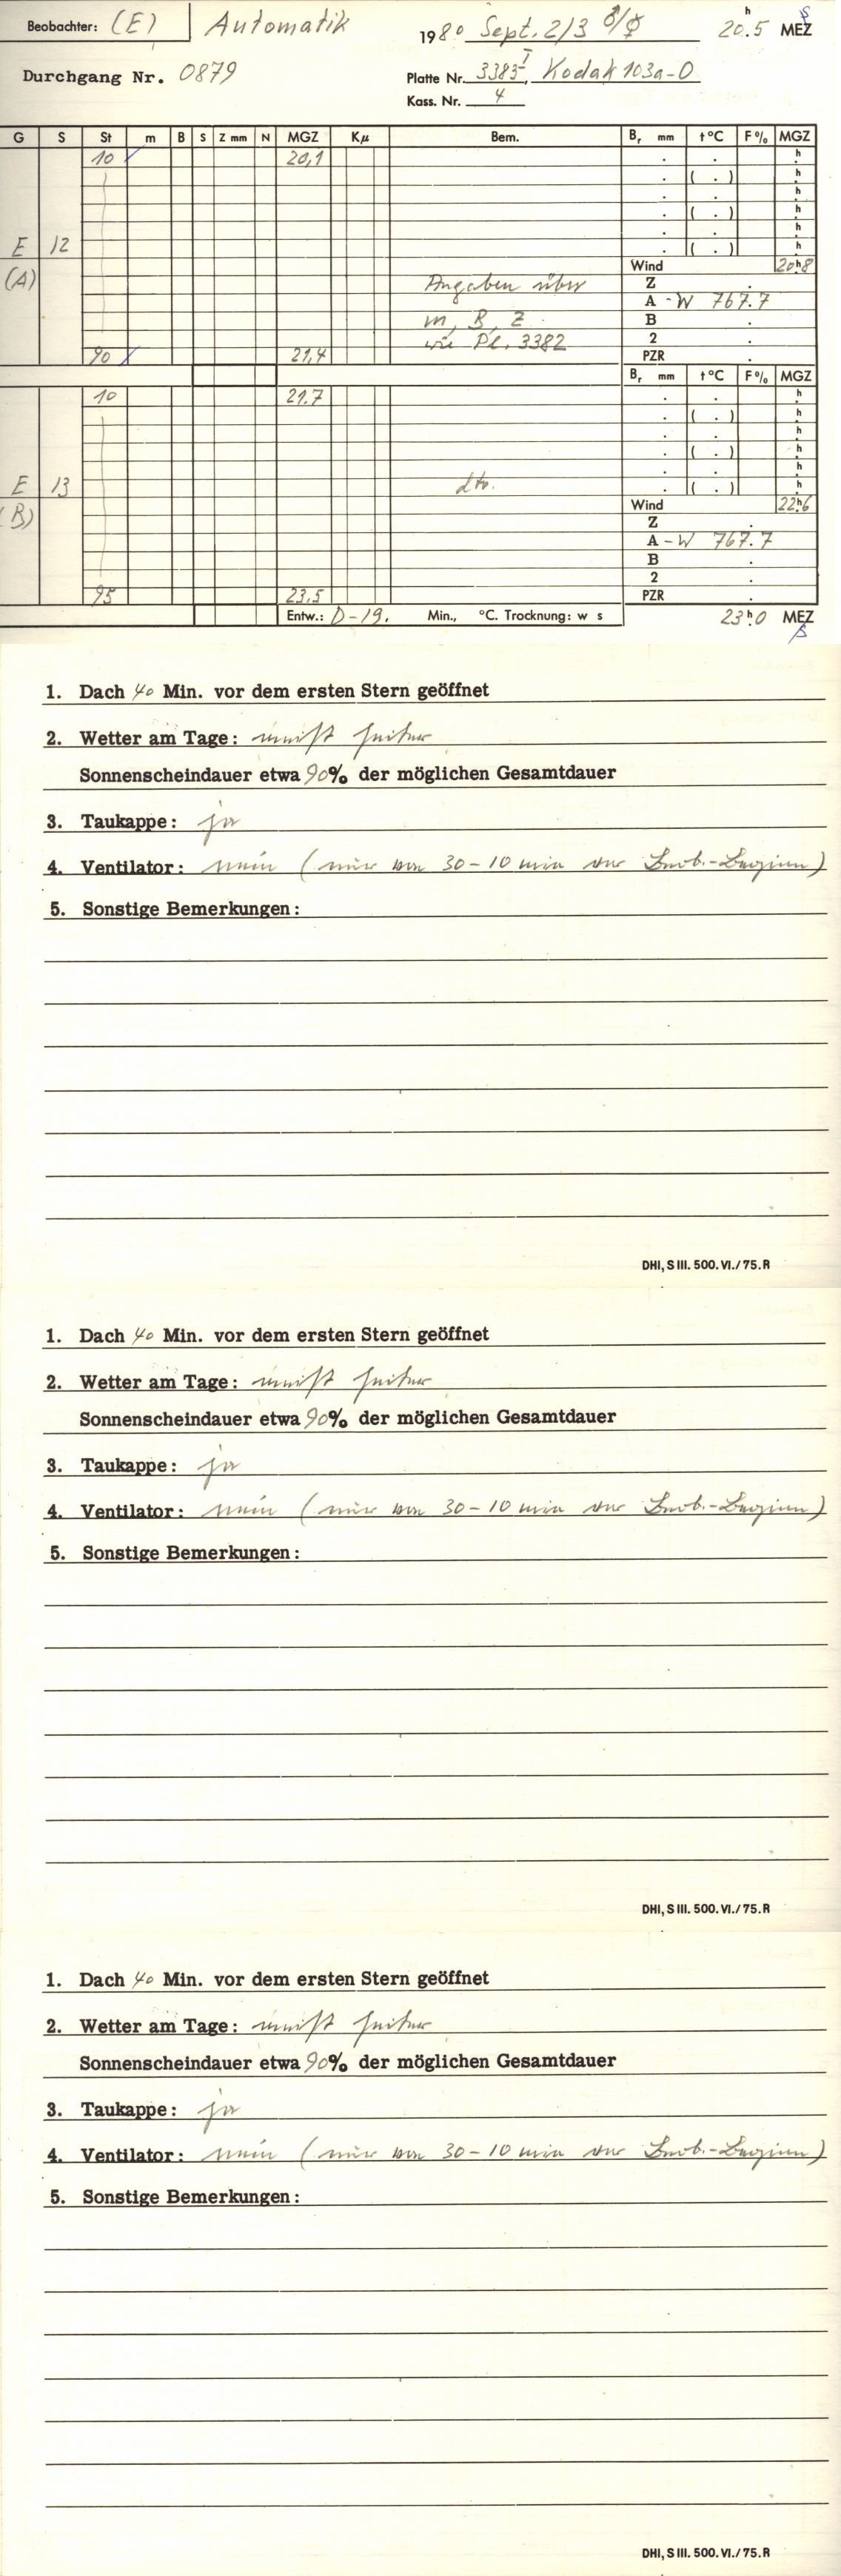 Beobachter: (E) Automatik 1980 Sept. 2/3 ♂/☿ 20.5 h MEZ
Durchgang Nr. 0879 Platte Nr. 3383 I, Kodak 103a-O
Kass. Nr. 4
G S St m B S Z mm N MGZ Kμ Bem. Br mm t°C F% MGZ
10 20,1 h
( . ) h
h
( . ) h
h
E 12 ( . ) h
Wind 20h8
(A) Angaben über Z
A - W 767.7
m, B, Z B
wie Pl. 3382 2
90 21,4 PZR
Br mm t°C F% MGZ
10 21.7 h
( . ) h
h
( . ) h
h
E 13 dto. ( . ) h
Wind 22h6
(B) Z
A - W 767.7
B
2
95 23.5 PZR
Entw.: D-19. Min., °C. Trocknung: w s 23h0 MEZ
1. Dach 40 Min. vor dem ersten Stern geöffnet
2. Wetter am Tage: meist heiter
Sonnenscheindauer etwa 90% der möglichen Gesamtdauer
3. Taukappe: ja
4. Ventilator: nein (nur von 30-10 min vor Beob.-Beginn)
5. Sonstige Bemerkungen:
DHI, S III. 500. VI./75. R
1. Dach 40 Min. vor dem ersten Stern geöffnet
2. Wetter am Tage: meist heiter
Sonnenscheindauer etwa 90% der möglichen Gesamtdauer
3. Taukappe: ja
4. Ventilator: nein (nur von 30-10 min vor Beob.-Beginn)
5. Sonstige Bemerkungen:
DHI, S III. 500. VI./75. R
1. Dach 40 Min. vor dem ersten Stern geöffnet
2. Wetter am Tage: meist heiter
Sonnenscheindauer etwa 90% der möglichen Gesamtdauer
3. Taukappe: ja
4. Ventilator: nein (nur von 30-10 min vor Beob.-Beginn)
5. Sonstige Bemerkungen:
DHI, S III. 500. VI./75. R